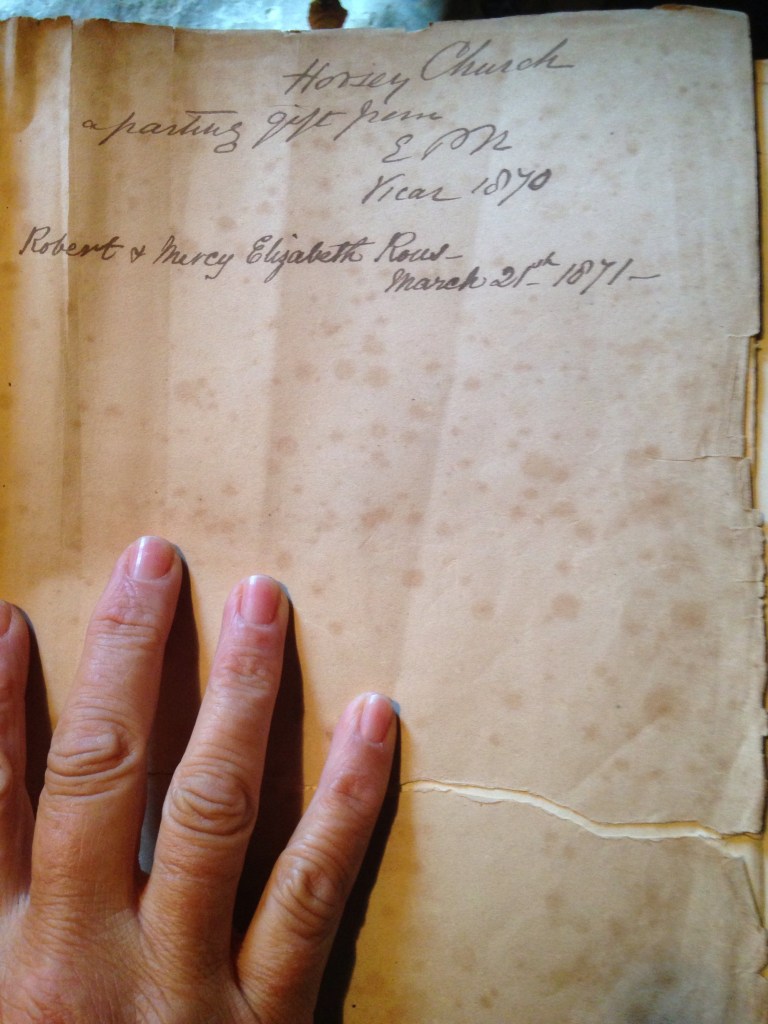 Horsey Church
a parting gift from
E P N
Vicar 1870
Robert & Mercy Elizabeth Rous-
March 21st 1871-